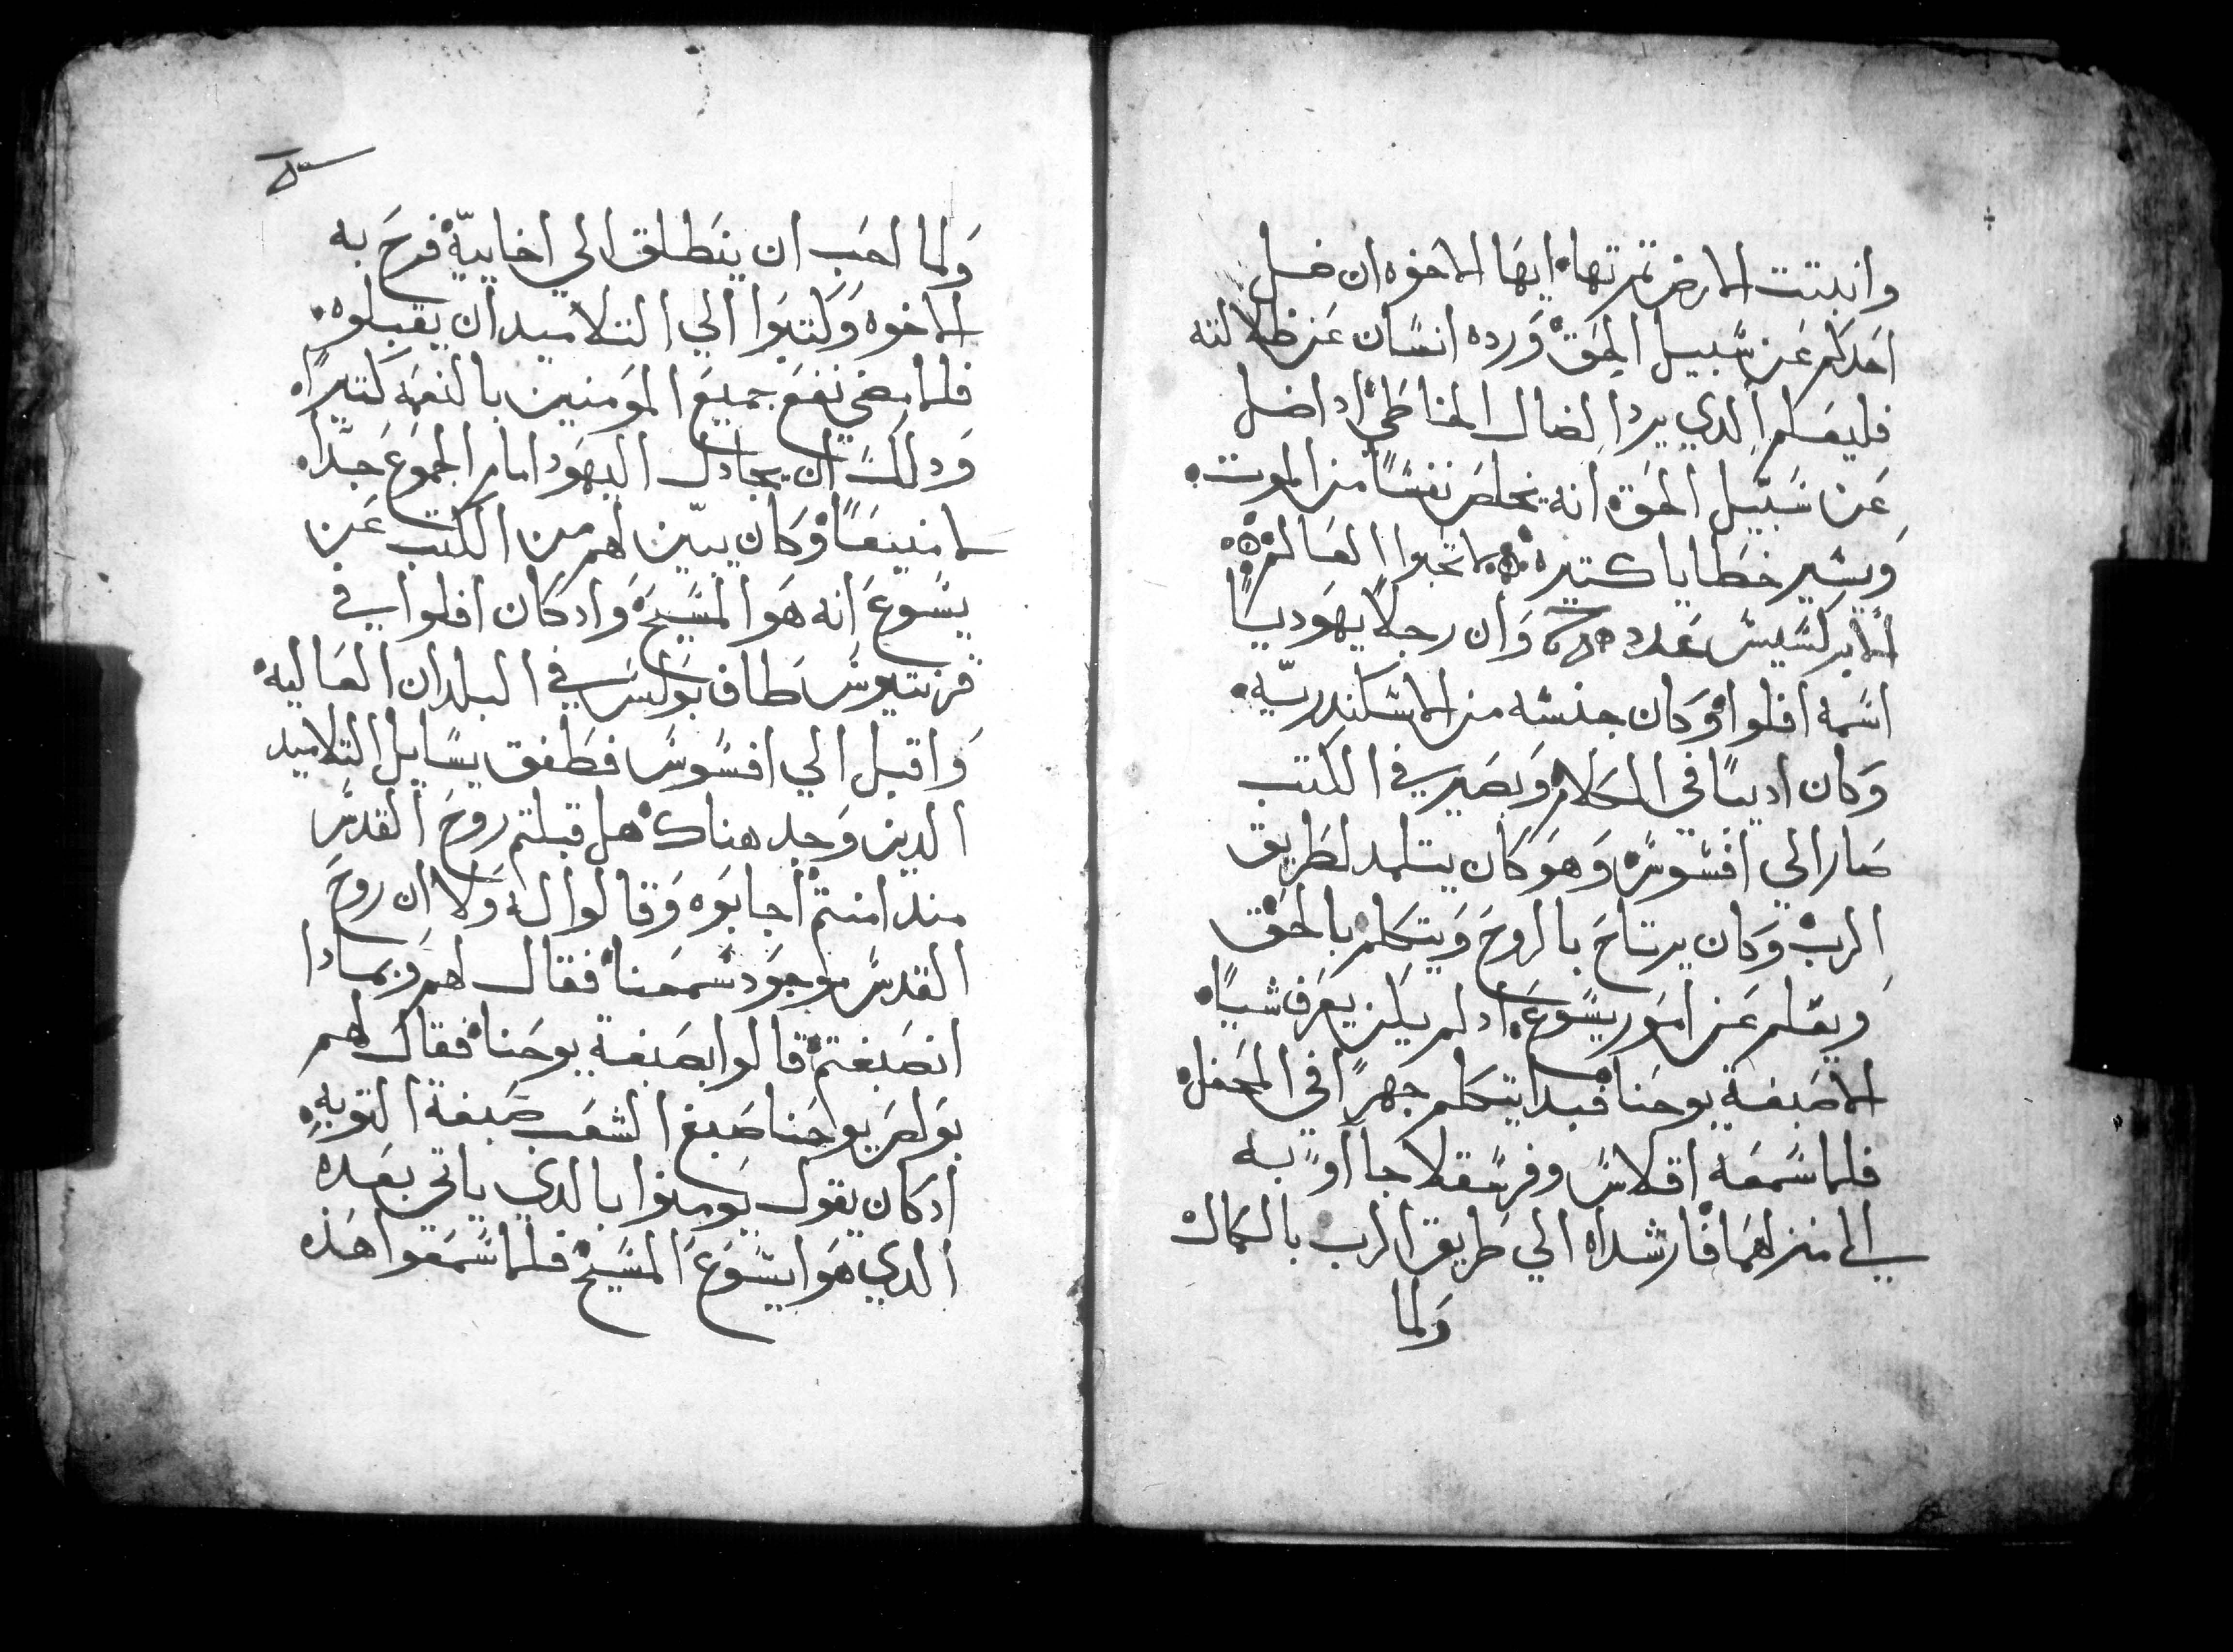 وانبتت الارض تمرتها ايها الاخوه ان ضل
احدكم عن سبيل الحق ورده انسان عن ظلالته
فليعلم الدي يرد الضال الخاطي ادا ضل
عن سبيل الحق انه يخلص نفسًا من الموت
ويستر خطايا كتيره لا تحبوا العالم
الابركسيس عدد وان رجلًا يهوديًا
اسمه افلوا وكان جنسه من الاسكندريه
وكان اديبًا في الكلام وبصير في الكتب
صار الي افسوس وهو كان يتلمد لطريق
الرب وكان يرتاح بالروح ويتكلم بالحق
ويعلم عن امور يسوع اد لم يكن يعرف شيًا
الا صبغة يوحنا فبدا يتكلم جهرًا في المحفل
فلما سمعه اقلاس وفرسقلا جااو به
الي منزلهما فارشداه الي طريق الرب بالكمال
ولما
ولما احب ان ينطلق الي اخاييه فرح به
الاخوه وكتبوا الي التلاميد ان يقبلوه
فلما مضي نفع جميع المومنين بالنعمه كتيرًا
ودلك ان يجادل اليهود امام الجموع جدًا
منيعًا وكان يبين لهم من الكتب عن
يسوع انه هو المسيح واد كان افلوا في
قرنتيوس طاف بولس في البلدان العاليه
واقبل الي افسوس فطفق يسايل التلاميد
الدين وجد هناك هل قبلتم روح القدس
مند امنتم اجابوه وقالوا له ولا ان روح
القدس موجود سمعنا فقال لهم وبمادا
انصبغتم قالوا بصبغة يوحنا فقال لهم
بولص يوحنا صبغ الشعب صبغة التوبه
ادكان يقول يومنوا بالدي ياتي بعده
الدي هو ايسوع المسيح فلما سمعوا هذه